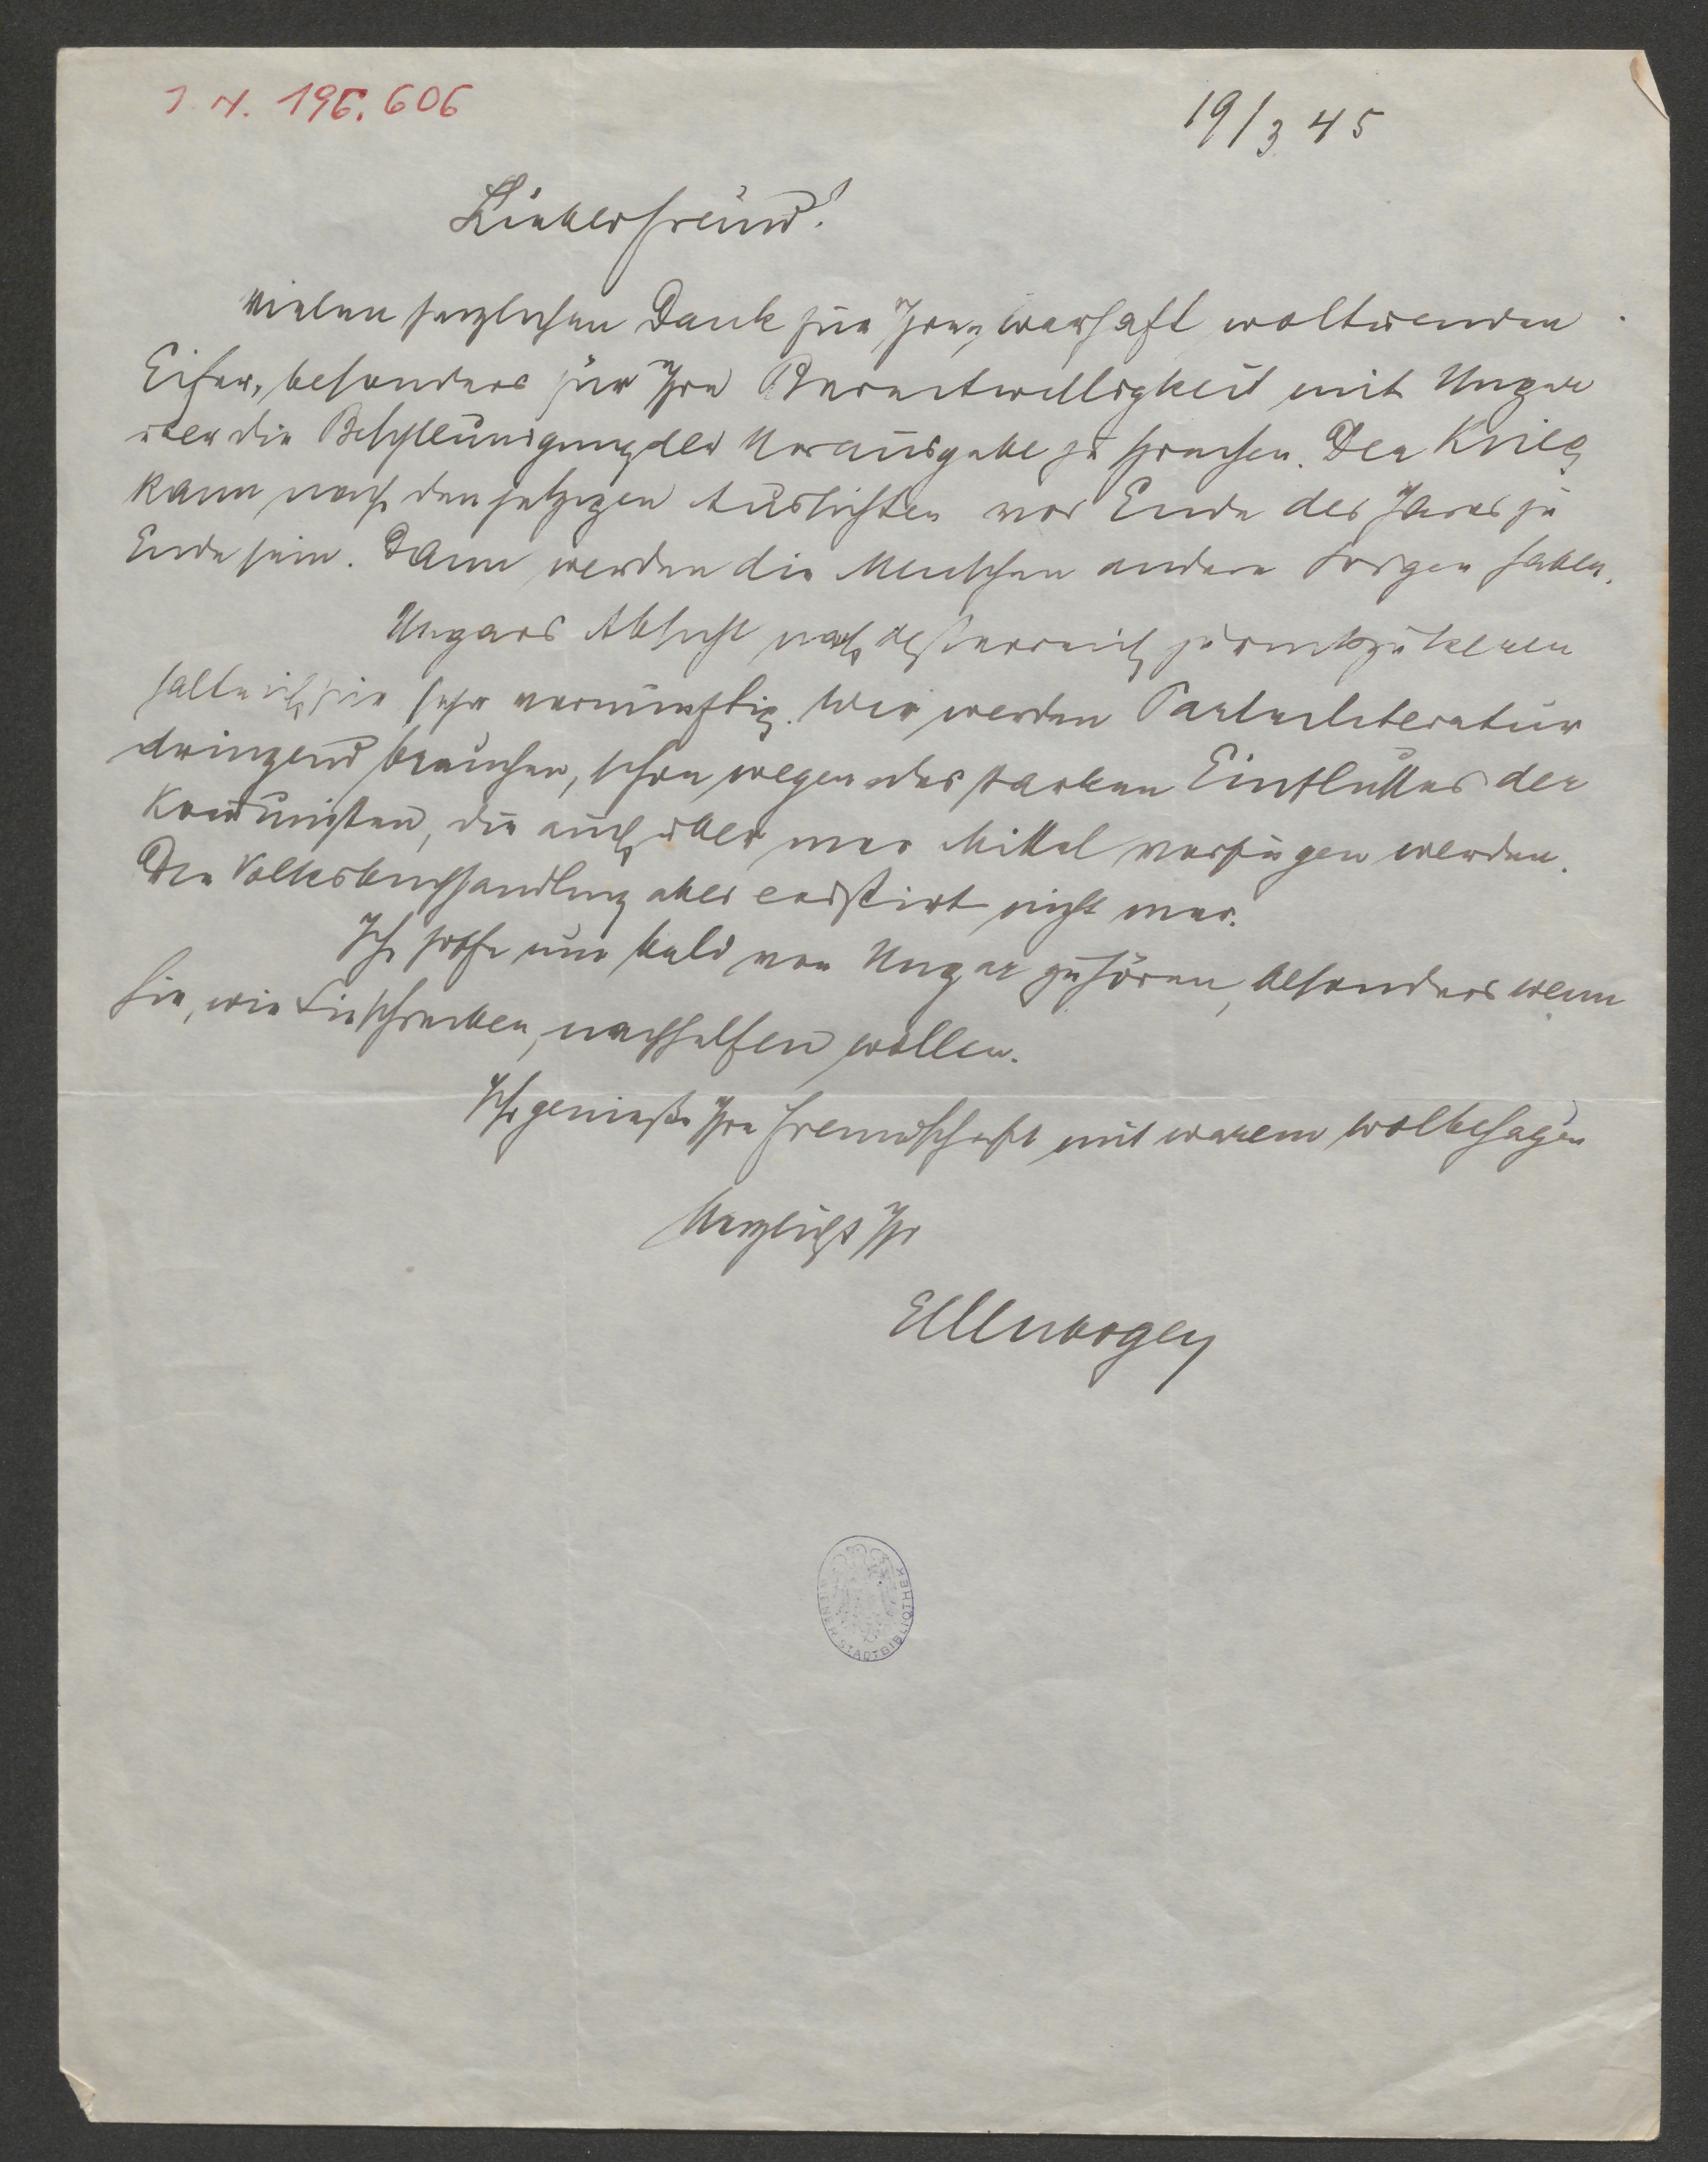 I. N. 196.606
19/3 45
Lieber Freund!
Vielen herzlichen Dank für Ihren warhaft woltuenden
Eifer, besonders für Ihre Bereitwilligkeit mit Ungar
über die Beschleunigung der Herausgabe zu sprechen. Der Krieg
kann nach den jetzigen Aussichten vor Ende des Jares zu
Ende sein. Dann werden die Menschen andere Sorgen haben.
Ungars Absicht nach Österreich zurückzukeren
halte ich für sehr vernünftig. Wir werden Parteiliteratur
dringend brauchen, schon wegen des starken Einflusses der
Kommunisten, die auch über mer Mittel verfügen werden.
Die Volksbuchhandlung aber existirt nicht mer.
Ich hoffe nun bald von Ungar zu hören, besonders wenn
Sie, wie Sie schreiben, nachhelfen wollen.
Ich genieße Ihre Freundschaft mit warem Wolbehagen
Herzlichst Ihr
Ellenbogen
WIENER STADTBIBLIOTHEK